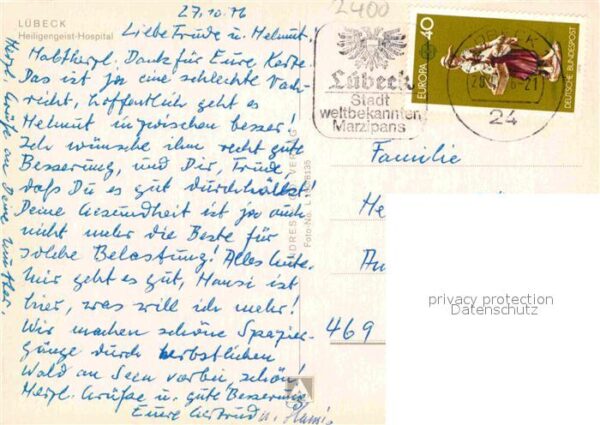 LÜBECK
Heiligengeist-Hospital
27.10.76
Liebe Trude u. Helmut,
Dank für Eure Karte.
Das ist ja eine schlechte Nach-
richt, hoffentlich geht es
Helmut inzwischen besser!
Ich wünsche ihm recht gute
Besserung, und Dir, Trude,
daß Du es gut durchhältst!
Deine Gesundheit ist ja auch
nicht mehr die Beste für
solche Belastung! Alles Gute.
Mir geht es gut, Hansi ist
hier, was will ich mehr!
Wir machen schöne Spazier-
gänge durch herbstlichen
Wald an Seen vorbei, schön!
Herzl. Grüße u. gute Besserung
Eure Gertrud u. Hansi
Herzl. Grüße an Deine Mutter.
2400
Lübeck
Stadt
weltbekannten
Marzipans
24
EUROPA
40
DEUTSCHE BUNDESPOST
Familie
He
469
privacy protection
Datenschutz